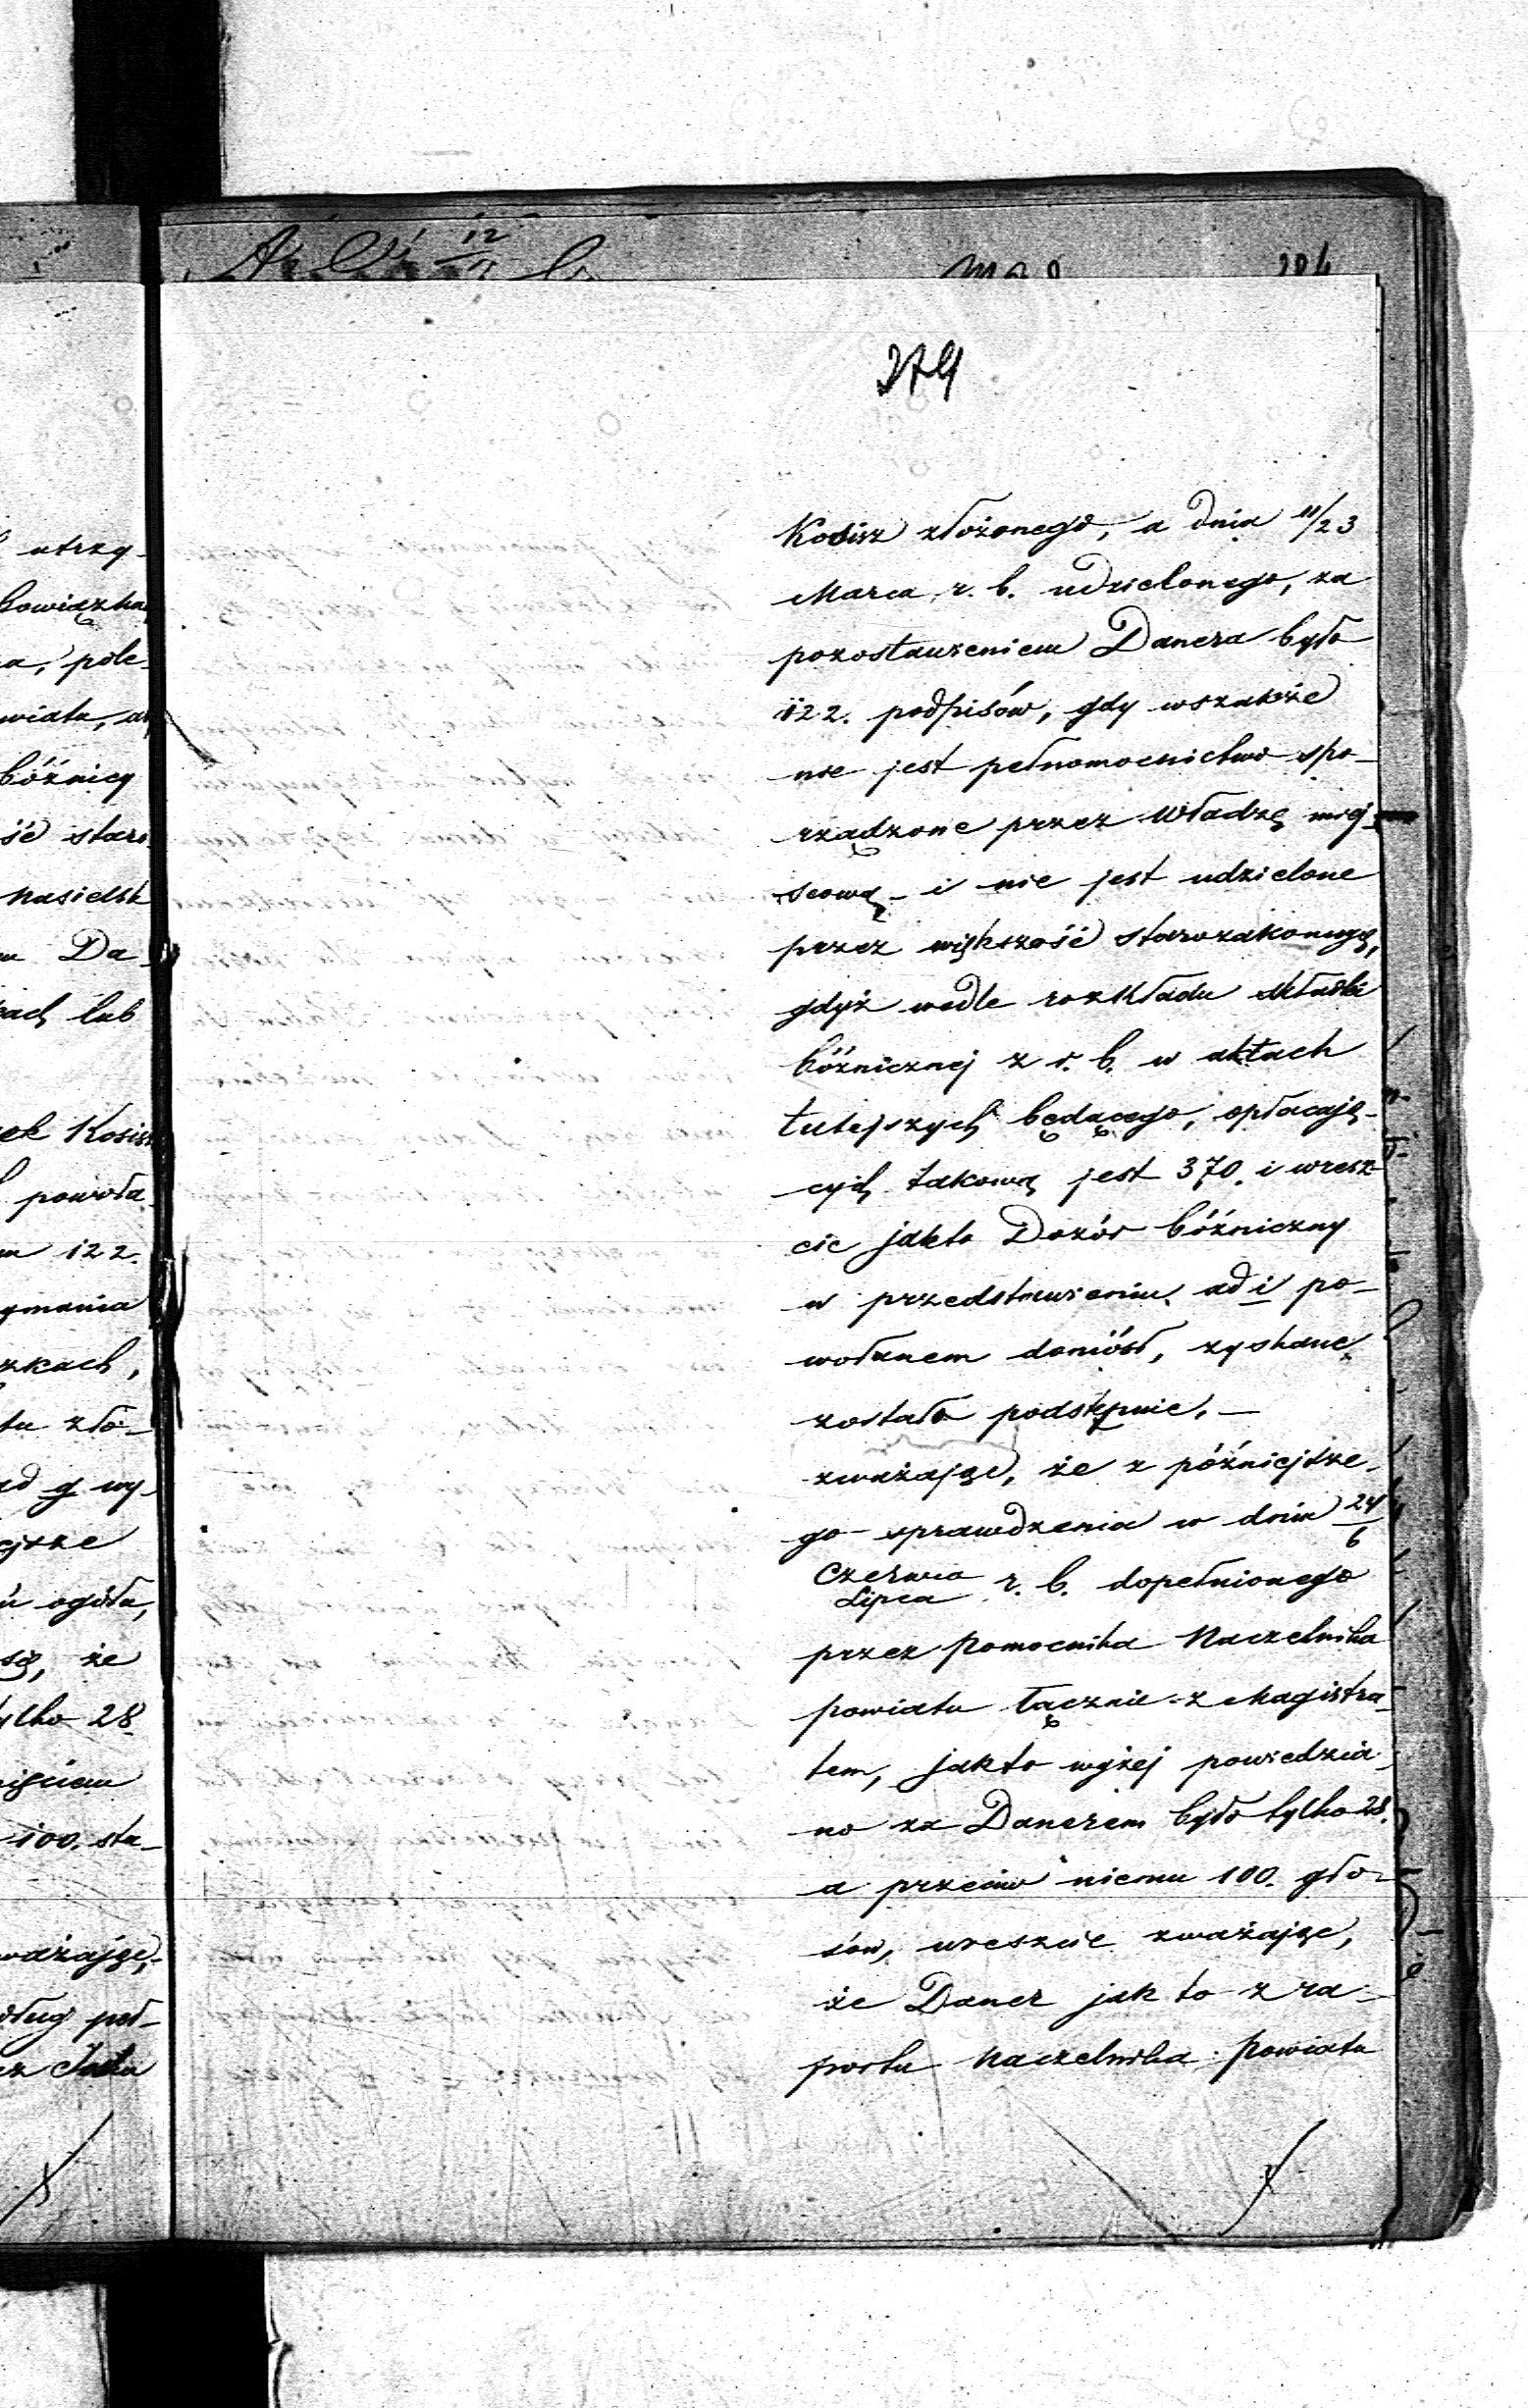 374
Kosisz złożonego, a dnia 11/23
Marca r. b. udzielonego, za
pozostawieniem Danera było
122. podpisów, gdy wszakże
nie jest pełnomocnictwo spo-
rządzone przez Władzę miej-
scową - i nie jest udzielone
przez większość starozakonnych,
gdyż wedle rozkładu składki
bóżnicznej z r. b. w aktach
tutejszych będącego, opłacają-
cych takową jest 370. i wresz-
cie jak to Dozór bóżniczny
w przedstawieniu ad 1 po-
wołanem doniósł, zyskane
zostało podstępnie. —
zważając, że z późniejsze-
go sprawdzenia w dniu 24/6
Czerwca/Lipca r. b. dopełnionego
przez Pomocnika Naczelnika
powiatu łącznie z Magistra-
tem, jak to wyżej powiedzia-
no za Danerem było tylko 28.
a przeciw niemu 100. gło-
sów, wreszcie zważając,
że Daner jak to z ra-
portu Naczelnika Powiatu
utrzy-
pole-
bóżnicy
ść staro
Nasielsk
Da-
lub
Kosisz
powoła-
122.
zło-
ad g wy-
ogółu,
się, że
tylko 28
100. sta-
zważając,